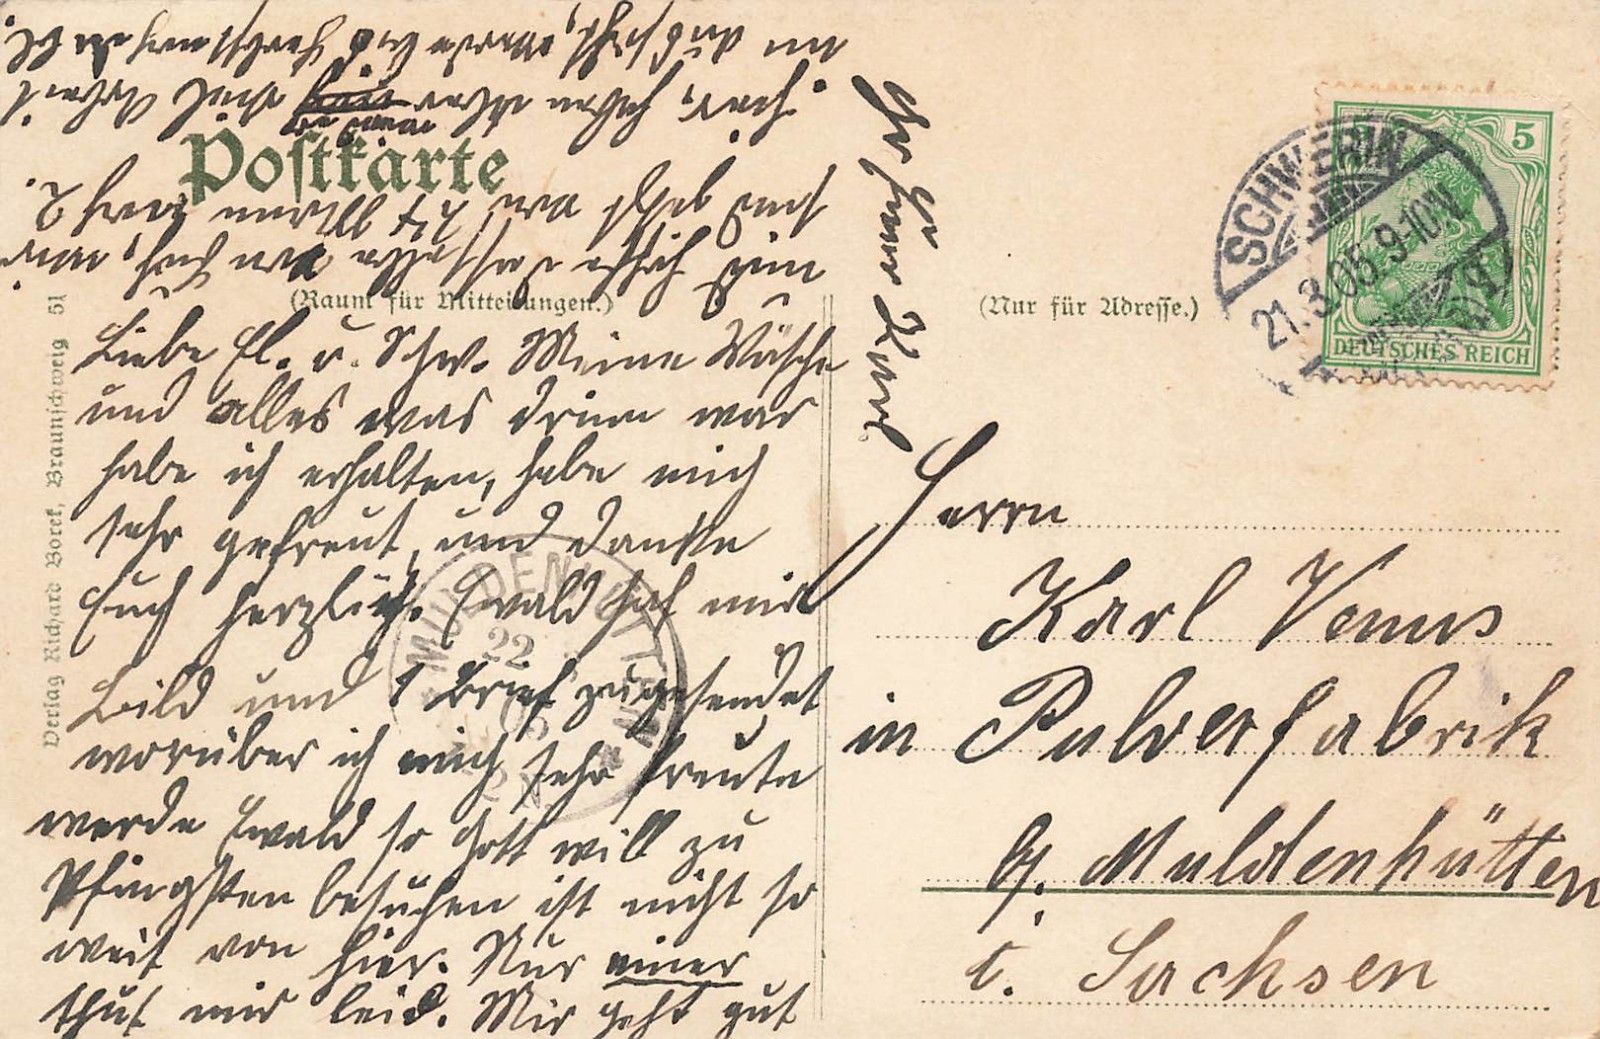 Postkarte
(Raum für Mitteilungen.)
(Nur für Adresse.)
Verlag Richard Borek, Braunschweig 51
SCHWERIN
21.3.05.9-10N
5
DEUTSCHES REICH
MULDENHÜTTEN
22
05
Liebe El. u. Schw. Meine Wäsche
und alles was drinn war
habe ich erhalten, habe mich
sehr gefreut, und danke
Euch herzlich. Ewald hat mir
Bild und 1 Brief zugesendet
worüber ich mich sehr freute
werde Ewald so Gott will zu
Pfingsten besuchen ist nicht so
weit von hier. Nur einer
thut mir leid. Mir geht gut
hier, haben aber viel Arbeit
Euer Karl
Herrn
Karl Venus
in Pulverfabrik
b. Muldenhütten
i. Sachsen